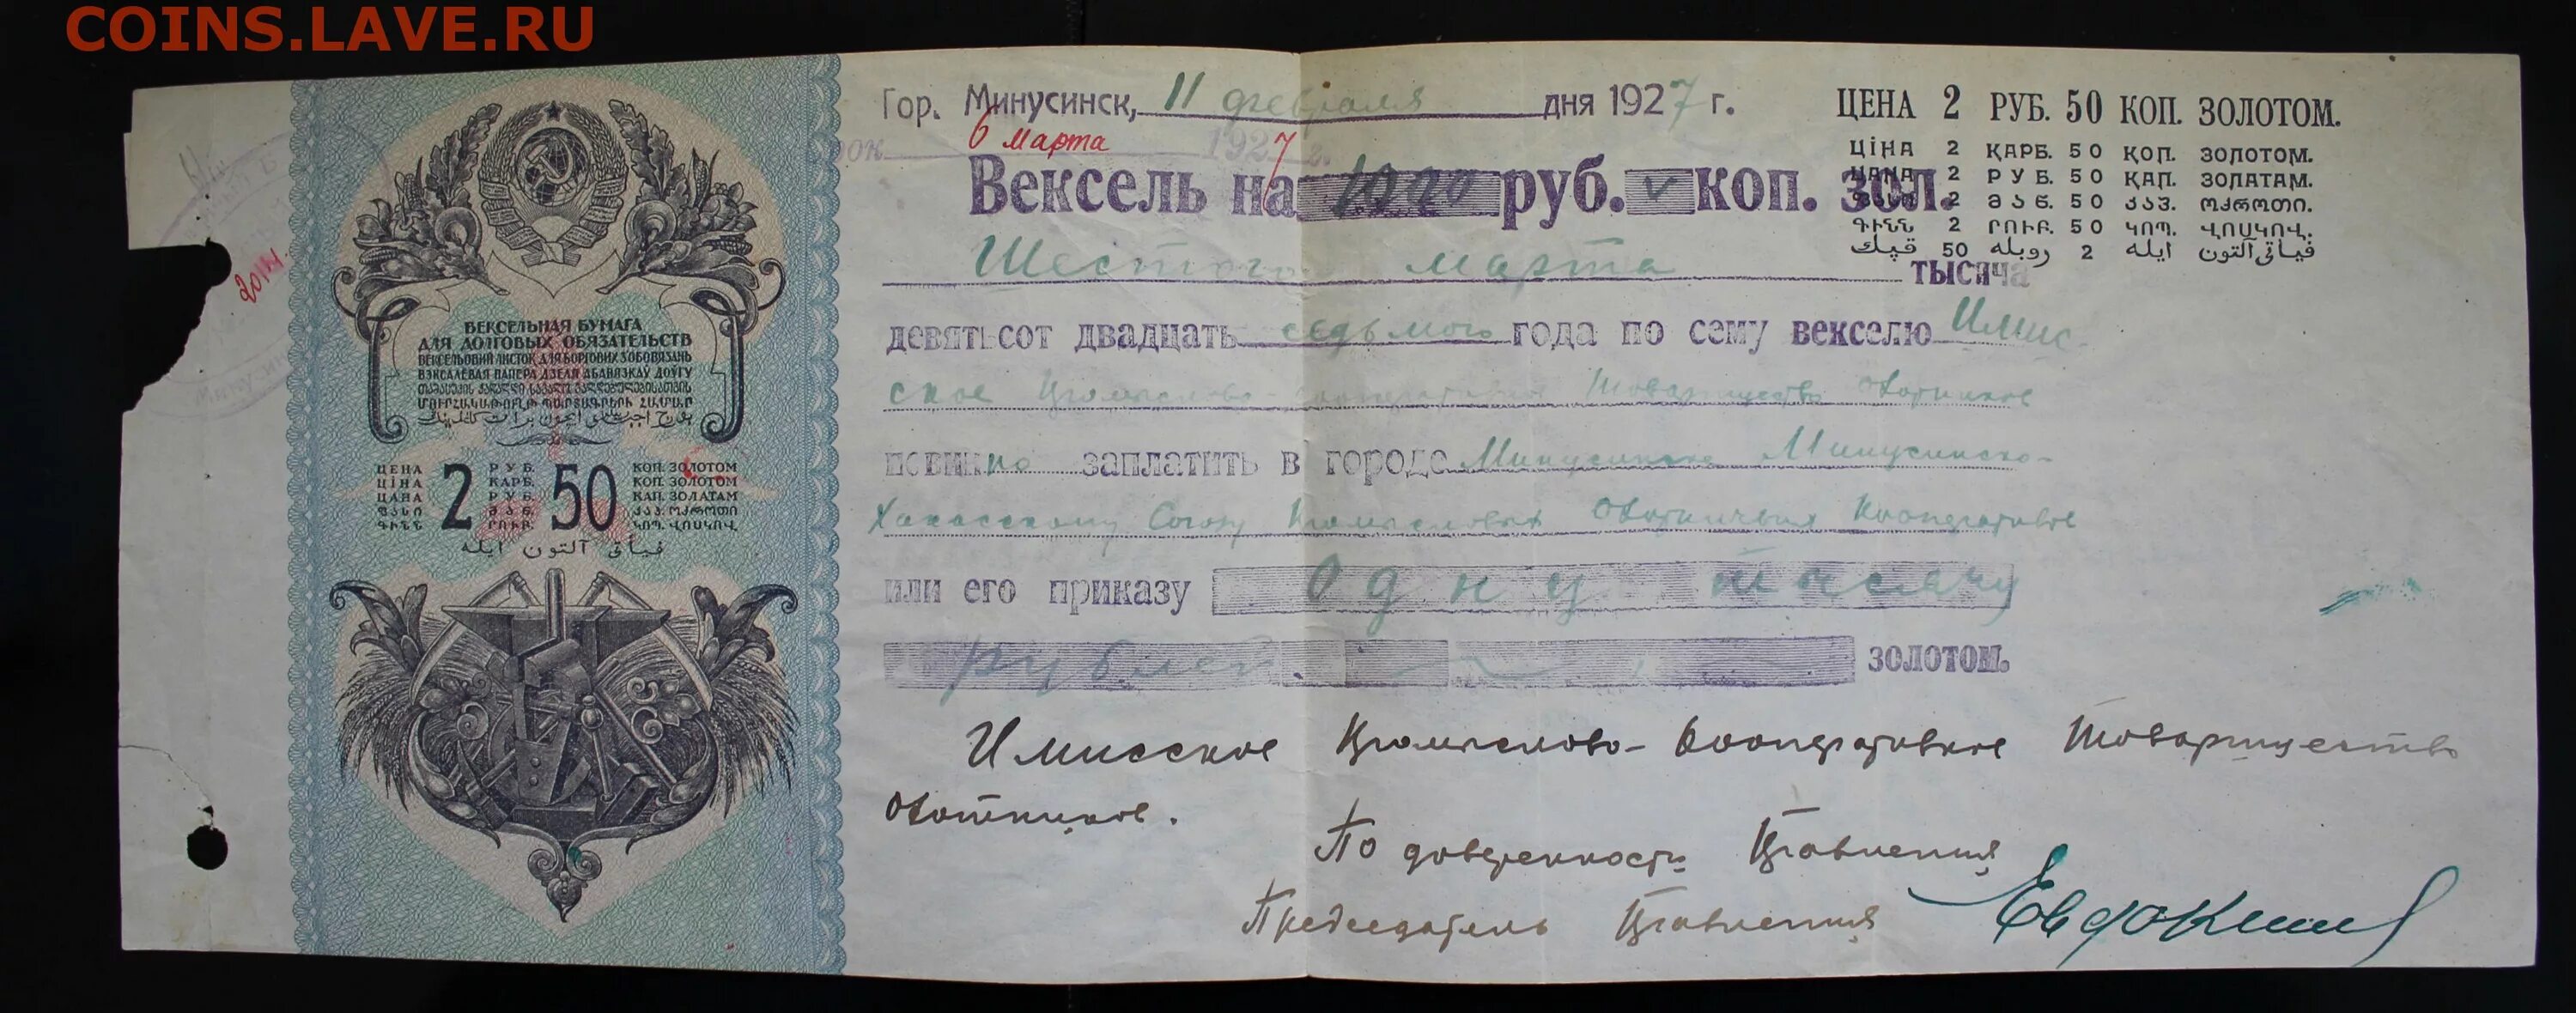 COINS.LAVE.RU
ВЕКСЕЛЬНАЯ БУМАГА
ДЛЯ ДОЛГОВЫХ ОБЯЗАТЕЛЬСТВ
ВЕКСЕЛЬОВИЙ ЛИСТОК ДЛЯ БОРГОВИХ ЗОБОВЯЗАНЬ
ВЭКСАЛЁВАЯ ПАПЕРА ДЗЕЛЯ АБАВЯЗКАЎ ДОЎГУ
ЦЕНА 2 РУБ. 50 КОП. ЗОЛОТОМ
ЦІНА КАРБ. КОП. ЗОЛОТОМ
ЦАНА РУБ. КАП. ЗОЛАТАМ
ՊՈՒԲ. ԿՈՊ. ՎՈՍԿՈՎ.
قیماتی آلتون ایله
Гор. Минусинск, 11 февраля дня 1927 г.
6 марта 1927 г.
Вексель на 1000 руб. коп. зол.
Шестого марта тысяча
девятьсот двадцать седьмого года по сему векселю Имис-
ское Промыслово-кооперативное Товарищество Охотников
повинно заплатить в городе Минусинске Минусинско-
Хакасскому Союзу Промысловых Охотничьих Кооперативов
или его приказу Одну тысячу
рублей золотом.
Имисское Промыслово-Кооперативное Товарищество
Охотников.
По доверенности Правления
Председатель Правления Евдокимов
ЦЕНА 2 РУБ. 50 КОП. ЗОЛОТОМ.
ЦІНА 2 КАРБ. 50 КОП. ЗОЛОТОМ.
ЦАНА 2 РУБ. 50 КАП. ЗОЛАТАМ.
2 მან. 50 კაპ. ოქროთი.
ԳԻՆՆ 2 ՐՈՒԲ. 50 ԿՈՊ. ՎՈՍԿՈՎ.
قیماتی آلتون ایله 2 روبله 50 قپیك